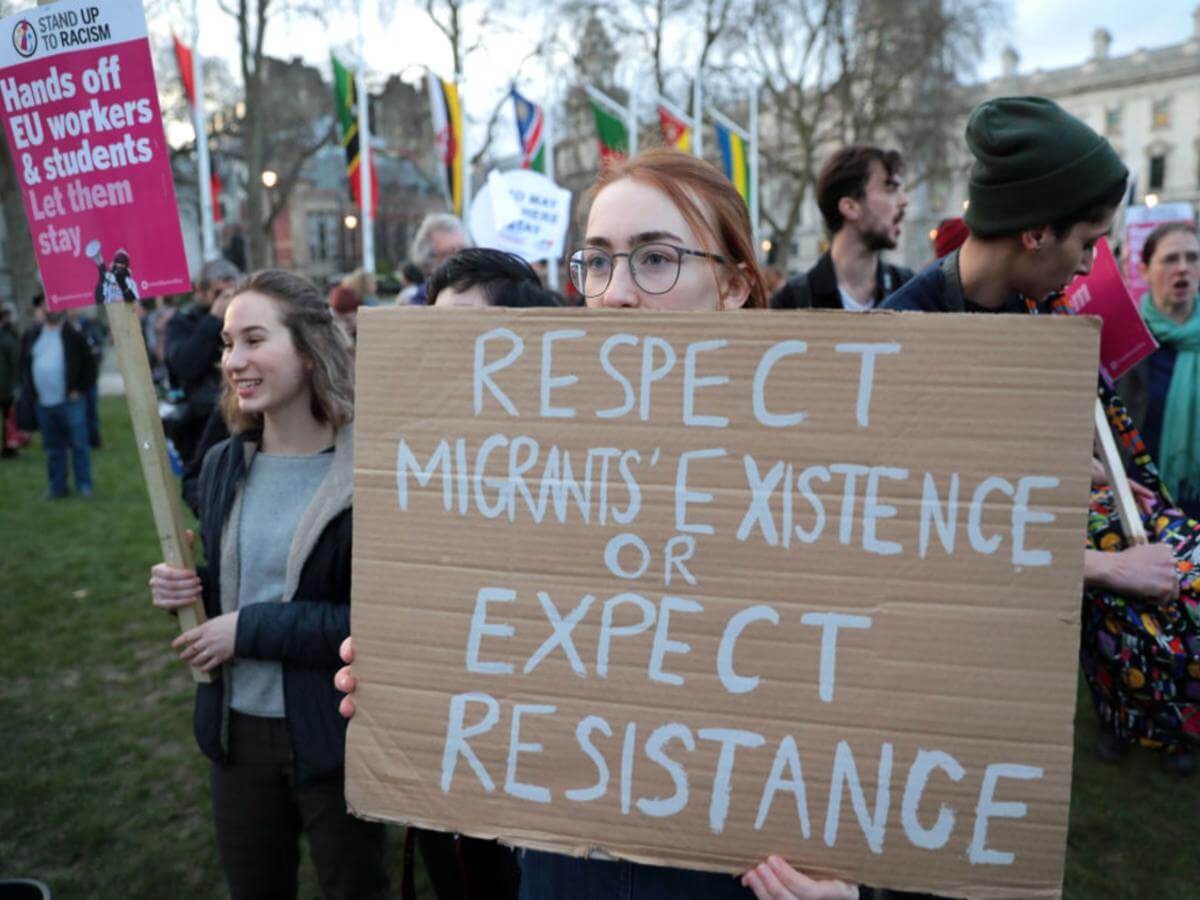 STAND UP
TO RACISM
Hands off
EU workers
& students
Let them
stay
MAY
HERE
STAY
RESPECT
MIGRANTS' EXISTENCE
OR
EXPECT
RESISTANCE